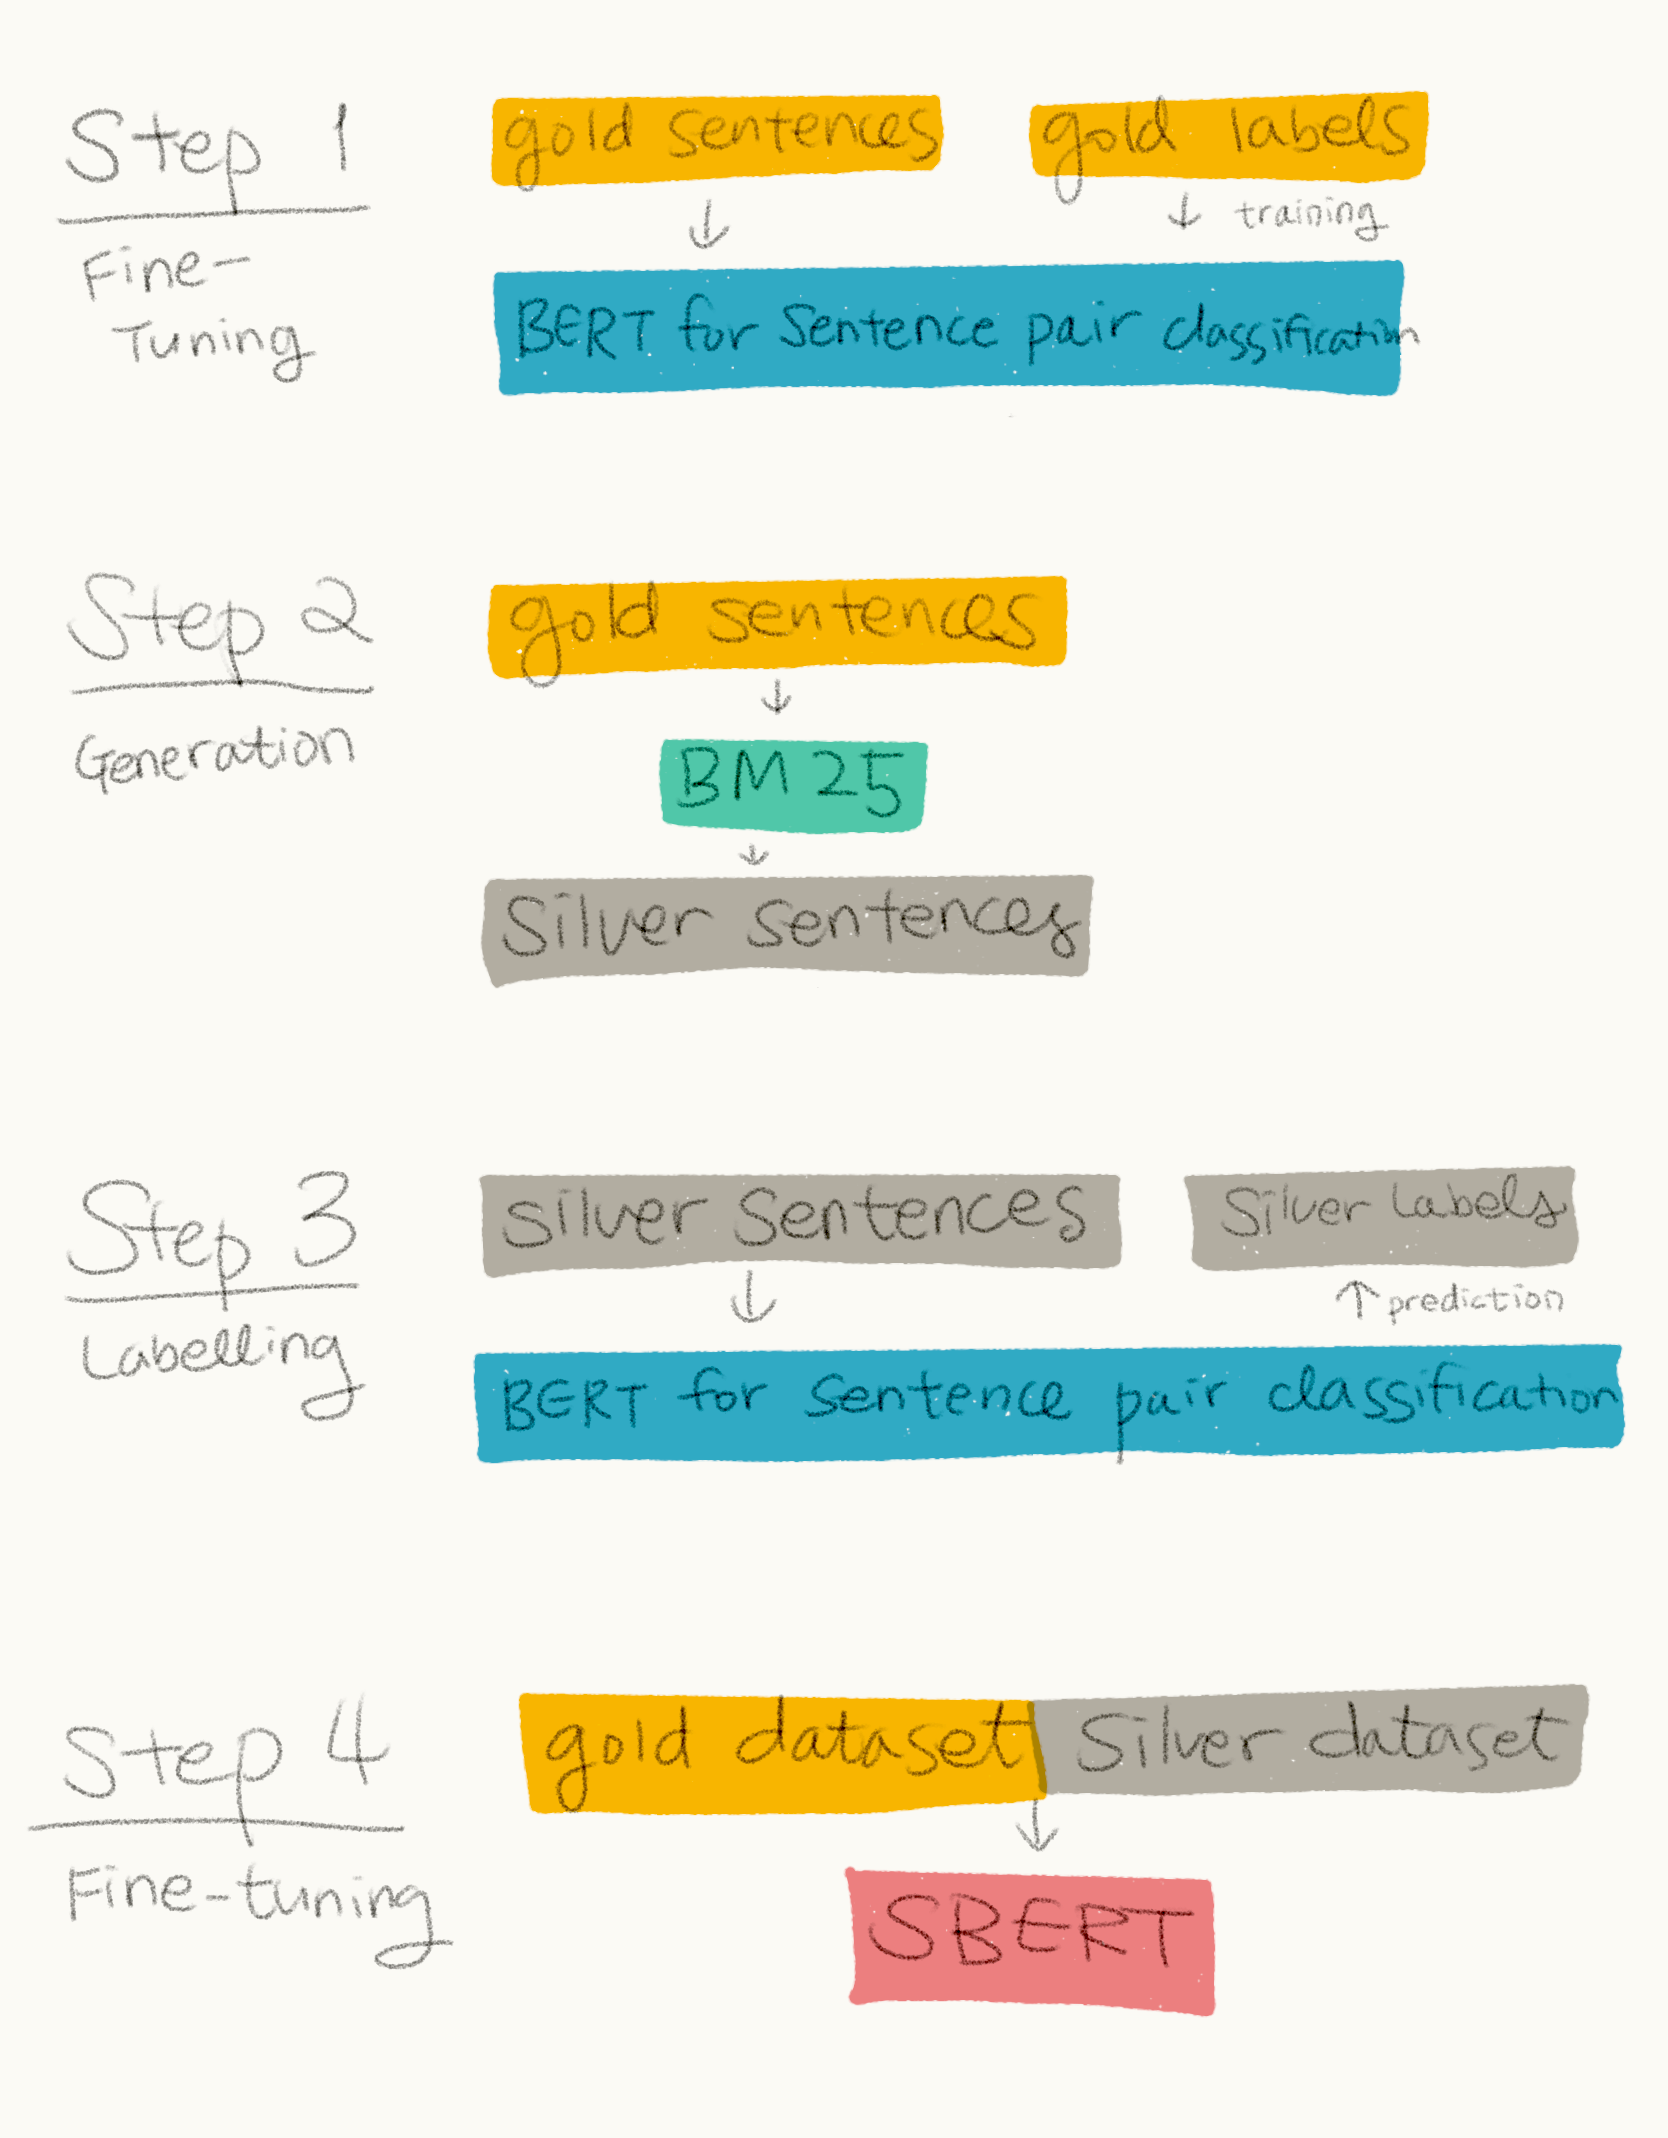 Step 1
Fine-
Tuning
gold sentences
gold labels
training
BERT for sentence pair classification
Step 2
Generation
gold sentences
BM25
Silver sentences
Step 3
Labelling
Silver Sentences
Silver Labels
prediction
BERT for sentence pair classification
Step 4
Fine-tuning
gold dataset
Silver dataset
SBERT